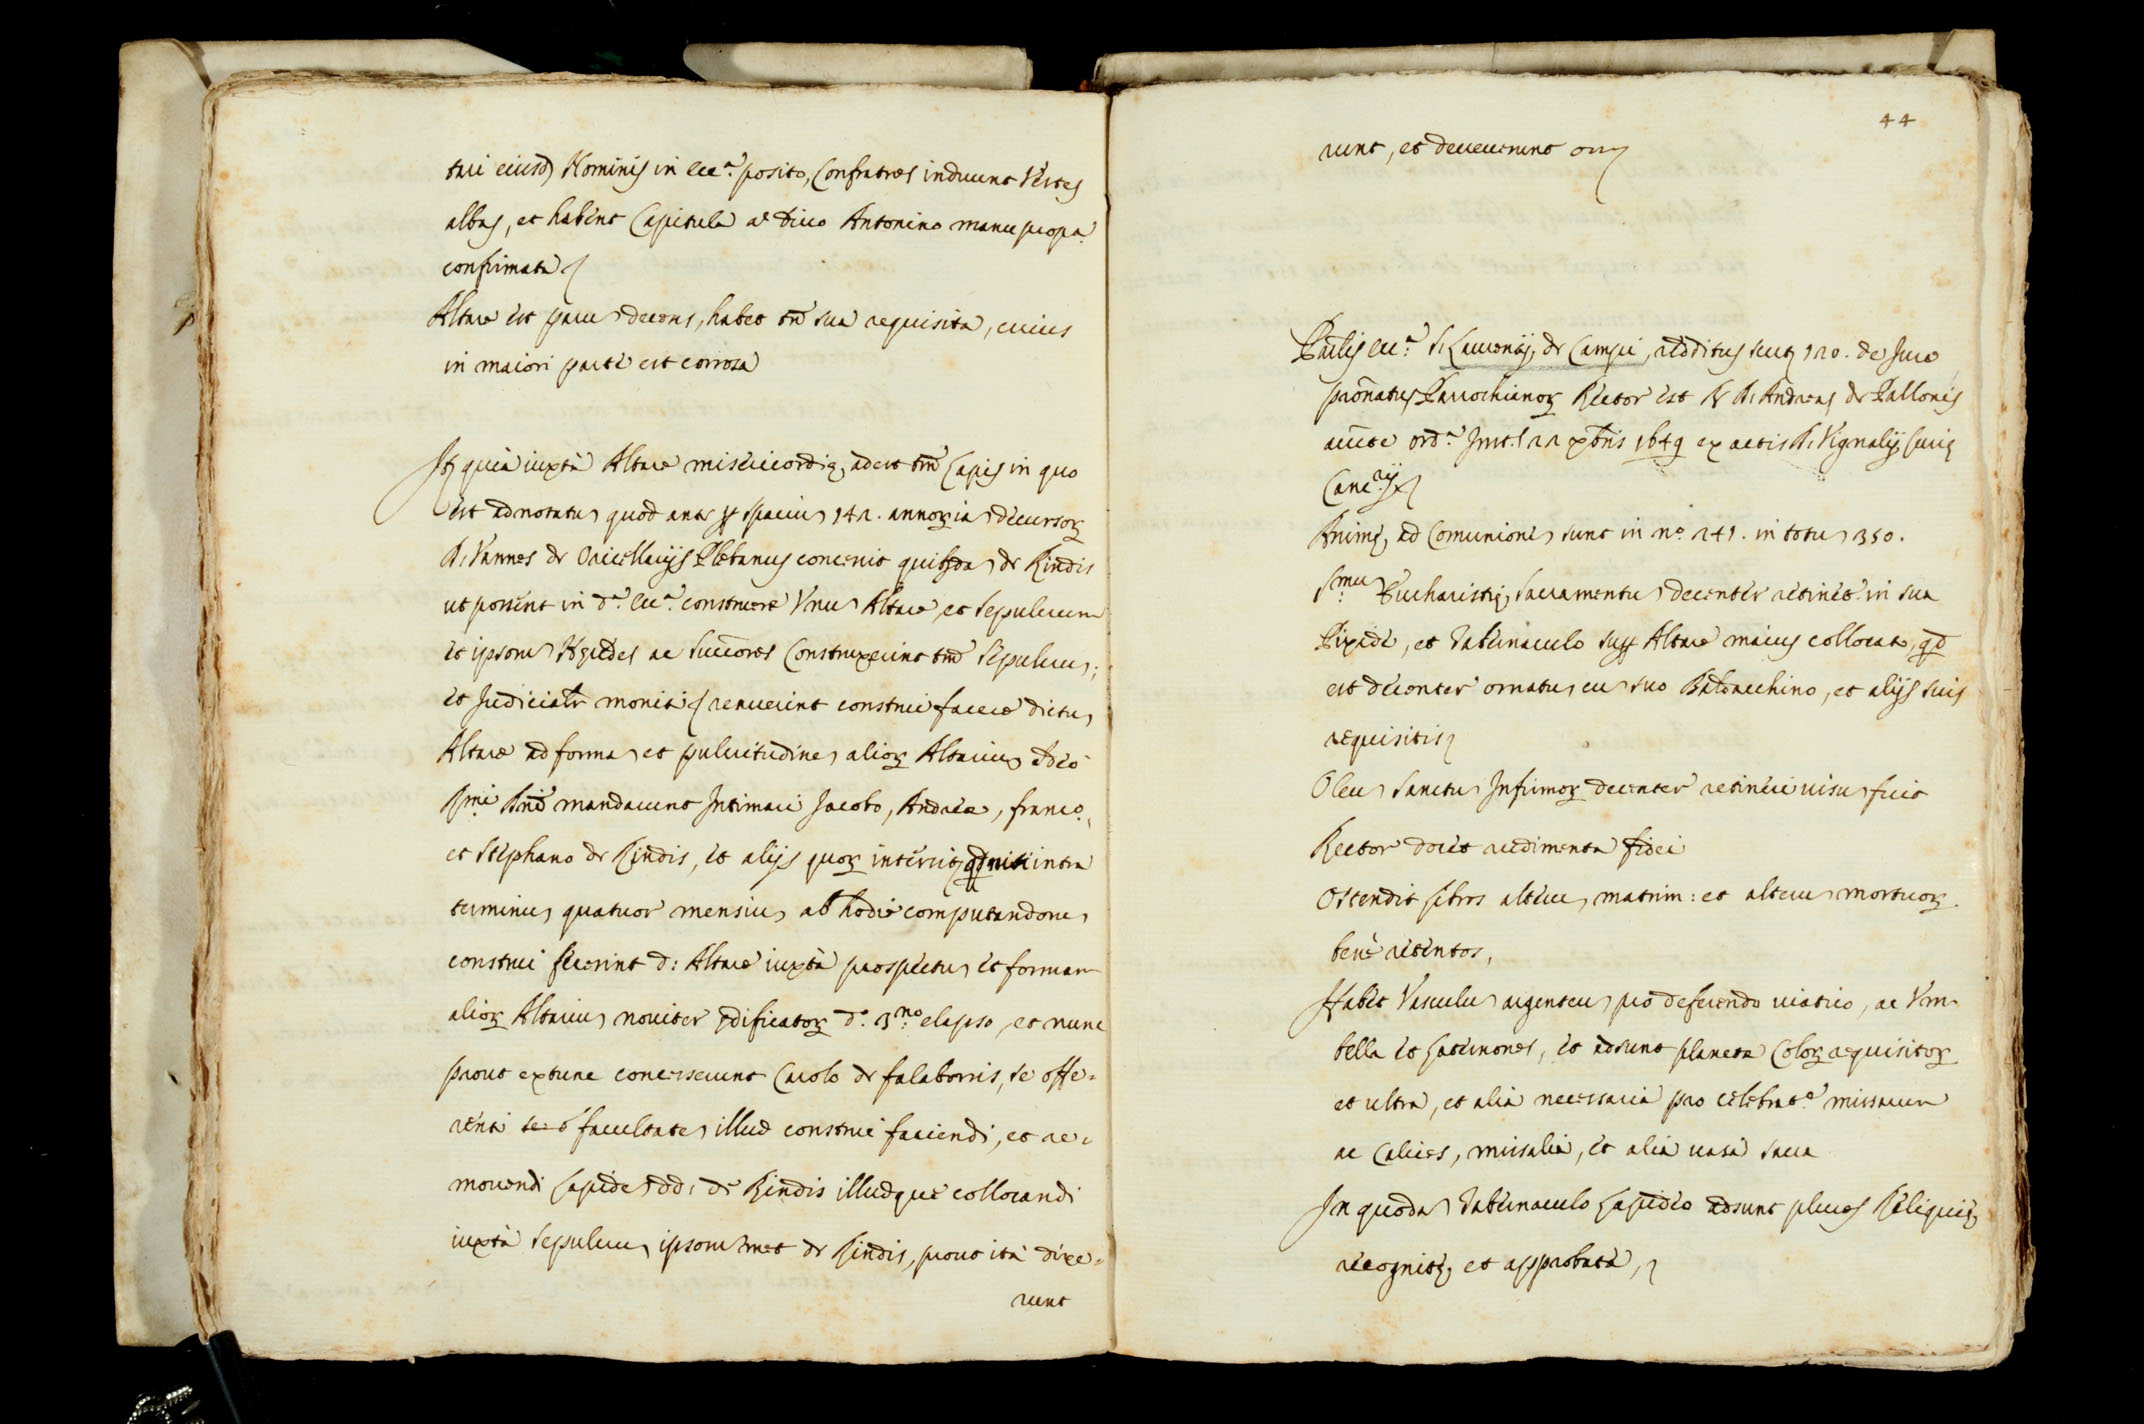 tari eiusd Hominis in ecc.ª posito, Confratres induunt Vestes
albas, et habent Capitula a Divo Antonino manu propa.
confirmata
Altare est parum decens, habet tn̄ sua requisita, cuius
in maiori parte est corrosa
It quia iuxtà Altare misericordię, adest tm̄ Lapis in quo
est adnotatu quod ante spatiu 142. annor ia decursor
D. Vannes de Oricellarijs Plebanus concessit quibda de Rindis
ut possent in d.ª ecc.ª construere Vnu Altare et Sepulcrum
et ipsoru Heredes ac Successores Construxerunt tm̄ Sepulcru;
et Judicialr moniti renuerunt construi facere dictu
Altare ad forma et pulcritudine alior Altariu Ideò
mandarunt Intimari Jacobo, Andreæ, franc.o
et Stephano de Rindis, et alijs quor interest qd nisi intra
terminu quatuor mensiu ab hodie computandoru
construi fecerint d: Altare iuxtà prospectu et formam
alior Altariu noviter ędificator d.o 3.no elapso, et nunc
prout extunc concesserunt Carolo de falabonis, se offe=
renti facultate illud construi faciendi, et re=
movendi Lapide dd: de Rindis illudque collocandi
iuxtà Sepulcru ipsorumet de Rindis, prout ita dixe=
runt
44
runt, et decreverunt om̄
Parlis ecc.ª S. Laurentij de Campi, redditus scut 120. de Jure
pron̄atus Parrochianor Rector est R. D. Andreas de Pallonis
aucte ord.ª Inst. 22 xbris 1649 ex actis D. Vignalij Curię
Canc.rij
Animę ad Comunione sunt in n.o 241. in totu 350.
S.mu Eucharistię Sacramentu decenter retinet in sua
Pixide, et Tabernaculo supr Altare maius collocato, qd
est decenter ornatu cu suo Baldacchino, et alijs suis
requisitis
Oleu Sanctu Infirmor decenter retineri visu fuit
Rector docet rudimenta fidei
Ostendit libros alteru matrim: et alteru mortuor
benè retentos,
Habet Vasculu argenteu pro deferendo viatico, ac Vm=
bella et Laternones, et adsunt planetæ Color requisitor
et ultra, et alia necessaria pro celebrat.e missarum
ac Calices, missalia, et alia vasa sacra
In quoda Tabernaculo Lapideo adsunt plures Reliquię
recognitę et approbatæ,